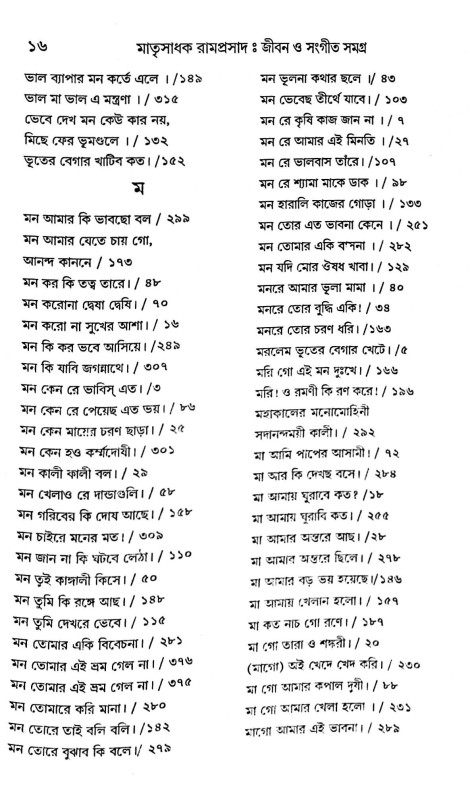 ১৬ মাতৃসাধক রামপ্রসাদ ঃ জীবন ও সংগীত সমগ্র
ভাল ব্যাপার মন কর্তে এলে ।/১৪৯
ভাল মা ভাল এ মন্ত্রণা ।/ ৩১৫
ভেবে দেখ মন কেউ কার নয়,
মিছে ফের ভূমণ্ডলে ।/ ১৩২
ভূতের বেগার খাটিব কত।/১৫২
ম
মন আমার কি ভাবছো বল / ২৯৯
মন আমার যেতে চায় গো,
আনন্দ কাননে / ১৭৩
মন কর কি তত্ব তারে।/ ৪৮
মন করোনা দ্বেষা দ্বেষি। / ৭০
মন করো না সুখের আশা। / ১৬
মন কি কর ভবে আসিয়ে।/২৪৯
মন কি যাবি জগন্নাথে। / ৩০৭
মন কেন রে ভাবিস্ এত। /৩
মন কেন রে পেয়েছ এত ভয়। / ৮৬
মন কেন মায়ের চরণ ছাড়া। / ২৫
মন কেন হও কর্ম্মদোষী। / ৩০১
মন কালী কালী বল। / ২৯
মন খেলাও রে দান্ডাগুলি। / ৫৮
মন গরিবের কি দোষ আছে। / ১৫৮
মন চাইরে মনের মত। / ৩০৯
মন জান না কি ঘটবে লেঠা। / ১১০
মন তুই কাঙ্গালী কিসে। / ৫০
মন তুমি কি রঙ্গে আছ। / ১৪৮
মন তুমি দেখরে ভেবে। / ১১৫
মন তোমার একি বিবেচনা। / ২৮১
মন তোমার এই ভ্রম গেল না। / ৩৭৬
মন তোমার এই ভ্রম গেল না। / ৩৭৫
মন তোমারে করি মানা। / ২৮০
মন তোরে তাই বলি বলি। /১৪২
মন তোরে বুঝাব কি বলে।/ ২৭৯
মন ভূলনা কথার ছলে ।/ ৪৩
মন ভেবেছ তীর্থে যাবে। / ১০৩
মন রে কৃষি কাজ জান না । / ৭
মন রে আমার এই মিনতি । /২৭
মন রে ভালবাস তাঁরে। /১০৭
মন রে শ্যামা মাকে ডাক । / ৯৮
মন হারালি কাজের গোড়া । / ১৩৩
মন তোর এত ভাবনা কেনে । / ২৫১
মন তোমার একি বন্দনা । / ২৮২
মন যদি মোর ঔষধ খাবা। / ১২৯
মনরে আমার ভূলা মামা । / ৪০
মনরে তোর বুদ্ধি একি! / ৩৪
মনরে তোর চরণ ধরি। /১৬৩
মরলেম ভূতের বেগার খেটে। /৫
মরি গো এই মন দুঃখে। / ১৬৬
মরি! ও রমণী কি রণ করে! / ১৯৬
মহাকালের মনোমোহিনী
সদানন্দময়ী কালী। / ২৯২
মা আমি পাপের আসামী। / ৭২
মা আর কি দেখছ বসে। / ২৮৪
মা আমায় ঘুরাবে কত? /১৮
মা আমায় ঘুরাবি কত। / ২৫৫
মা আমার অন্তরে আছ। /২৮
মা আমার অন্তরে ছিলে। / ২৭৮
মা আমার বড় ভয় হয়েছে।/১৪৬
মা আমায় খেলান হলো। / ১৫৭
মা কত নাচ গো রণে। / ১৮৭
মা গো তারা ও শঙ্করী। / ২০
(মাগো) অই খেদে খেদ করি। / ২৩০
মা গো আমার কপাল দূষী। / ৮৮
মা গো আমার খেলা হলো । / ২৩১
মাগো আমার এই ভাবনা। / ২৮৯